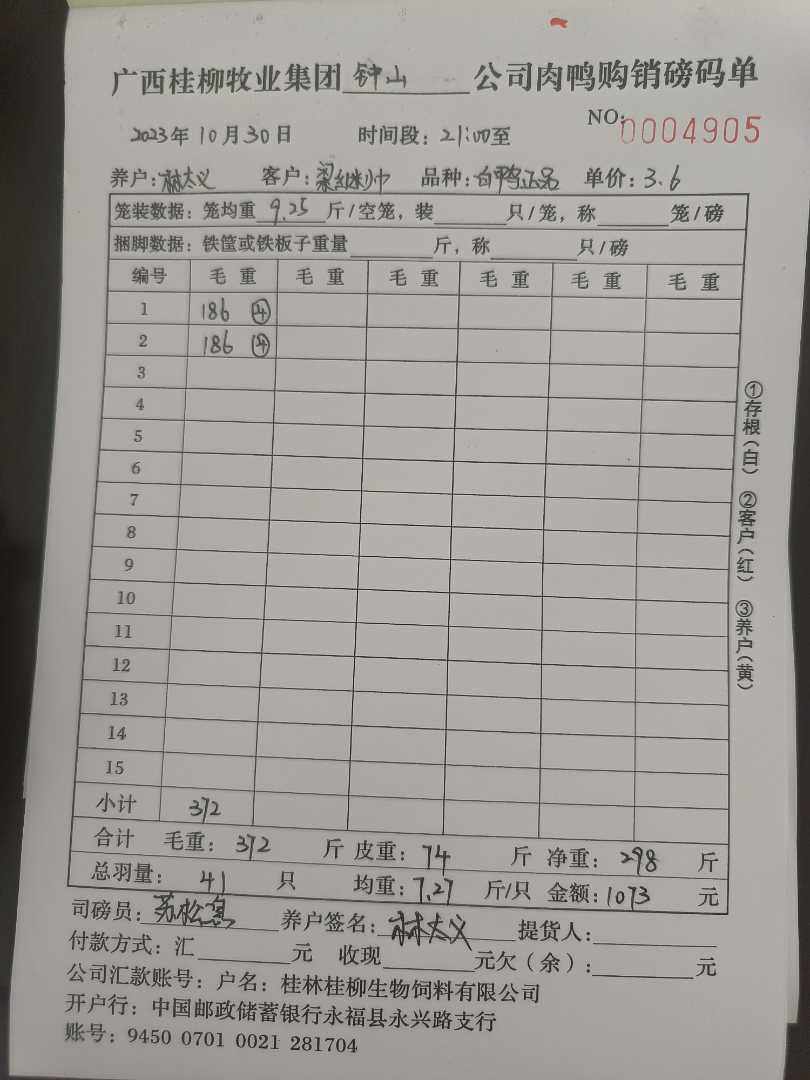 广西桂柳牧业集团 钟山 公司肉鸭购销磅码单
NO: 0004905
2023年10月30日 时间段: 21:00至
养户: 林太义 客户: 梁继帅 品种: 白鸭正品 单价: 3.6
笼装数据: 笼均重 9.25 斤/空笼, 装 只/笼, 称 笼/磅
捆脚数据: 铁筐或铁板子重量 斤, 称 只/磅
编号 毛重 毛重 毛重 毛重 毛重 毛重
1 186 ④
2 186 ④
3
4
5
6
7
8
9
10
11
12
13
14
15
小计 372
合计 毛重: 372 斤 皮重: 74 斤 净重: 298 斤
总羽量: 41 只 均重: 7.27 斤/只 金额: 1073 元
司磅员: 苏松 养户签名: 林太义 提货人:
付款方式: 汇 元 收现 元欠(余): 元
公司汇款账号: 户名: 桂林桂柳生物饲料有限公司
开户行: 中国邮政储蓄银行永福县永兴路支行
账号: 9450 0701 0021 281704
①存根(白) ②客户(红) ③养户(黄)